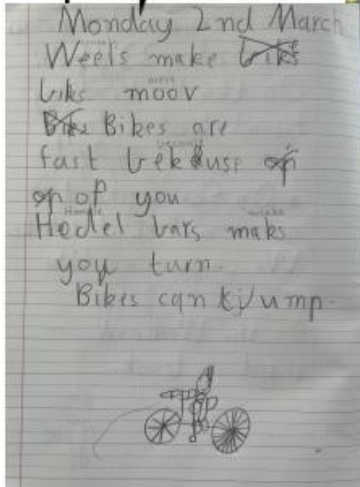 Monday 2nd March
Weels make biks
biks moov
Bikes Bikes are
fast bekause of
of of you
Hedel bars maks
you turn.
Bikes can jump.